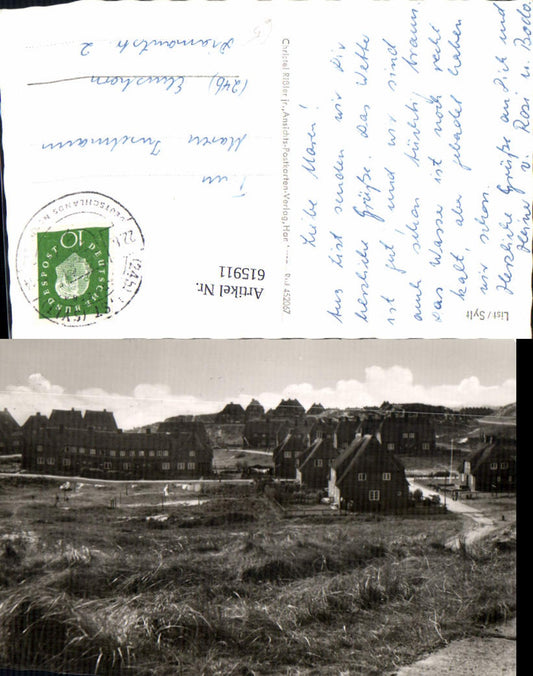 Liebe Maren!
Aus List senden wir Dir
herzliche Grüße. Das Wetter
ist gut und wir sind
auch schon tüchtig braun.
Das Wasser ist noch recht
kalt, aber gebadet haben
wir schon.
Herzliche Grüße an Dich und
Heiner v. Rosi u. Bodo.
Maren Inselmann
(24b) Elmshorn
Diamantstr. 2
List / Sylt
Christel Rißler jr., Ansichts-Postkarten-Verlag, Han
Artikel Nr.
615911
10
DEUTSCHE
BUNDESPOST